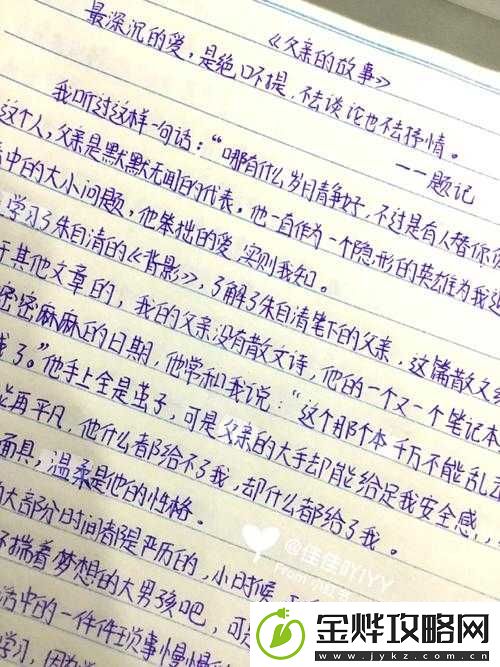 《父亲的故事》
最深沉的爱，是绝口不提，不去谈论也不去抒情。
——题记
我听过这样一句话：“哪有什么岁月静好，不过是有人替你
这个人，父亲是默默无闻的代表，他一直作为一个隐形的英雄为我
中的大小问题，他笨拙的爱，实则我知。
学习了朱自清的《背影》，了解了朱自清笔下的父亲，这篇散文
于其他文章的，我的父亲没有散文诗，他的一个又一个笔记本
密密麻麻的日期，他常和我说：“这个那个本千万不能乱
了。”他手上全是茧子，可是父亲的大手却能给足我安全感，
再平凡，他什么都给不了我，却什么都给了我。
面具，温柔是他的性格。
大部分时间都是严厉的，小时候
揣着梦想的大男孩吧，可
活中的一件件琐事慢慢
学习，因为
@佳佳吖IYY
From 小红书
金烨攻略网
www.jykz.com.cn